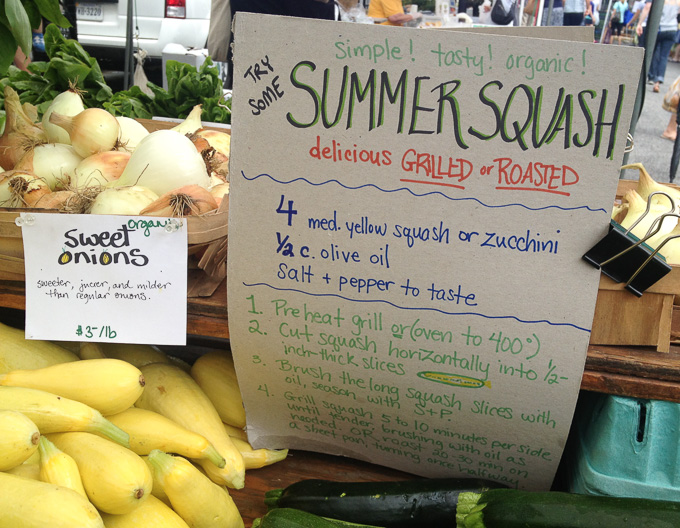 simple! tasty! organic!
TRY
SOME
SUMMER SQUASH
delicious GRILLED or ROASTED
4 med. yellow squash or zucchini
1/2 c. olive oil
salt + pepper to taste
1. Preheat grill or (oven to 400°)
2. Cut squash horizontally into 1/2-
inch-thick slices
3. Brush the long squash slices with
oil, season with S+P
4. Grill squash 5 to 10 minutes per side
until tender, brushing with oil as
needed. OR, roast 20-30 min on
a sheet pan, turning once halfway
organic
Sweet
onions
sweeter, juicier, and milder
than regular onions.
$3-/lb